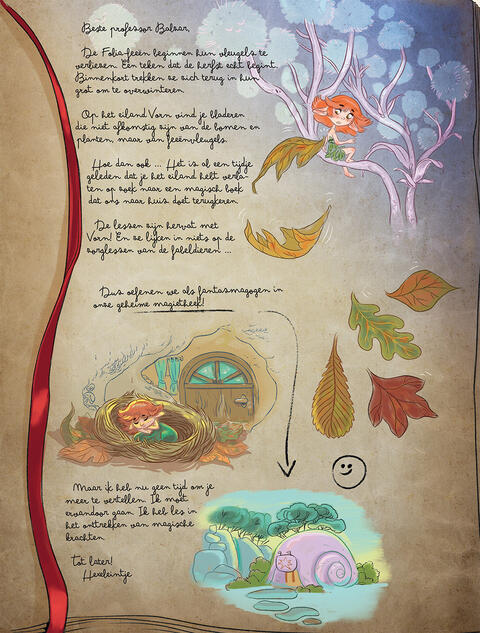 Beste professor Balzar,
De Folia-feeën beginnen hun vleugels te
verliezen. Een teken dat de herfst echt begint.
Binnenkort trekken ze zich terug in hun
grot om te overwinteren.
Op het eiland Vorn vind je bladeren
die niet afkomstig zijn van de bomen en
planten, maar van feeënvleugels.
Hoe dan ook ... Het is al een tijdje
geleden dat je het eiland helt verla-
ten op zoek naar een magisch boek
dat ons naar huis doet terugkeren.
De lessen zijn hervat met
Vorn! En ze lijken in niets op de
zorglessen van de fabeldieren ...
Dus oefenen we als fantasmagogen in
onze geheime magietheek!
Maar ik heb nu geen tijd om je
meer te vertellen. Ik moet
ervandoor gaan. Ik heb les in
het onttrekken van magische
krachten.
Tot later!
Hexeleintje